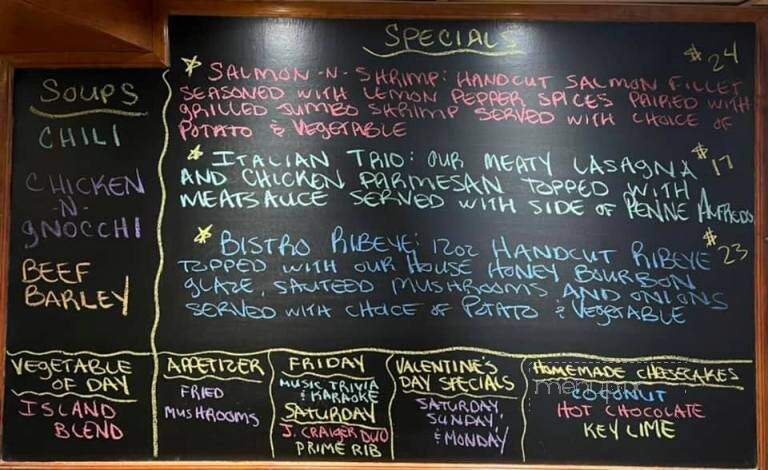 SPECIALS
SOUPS
CHILI
CHICKEN
-N-
GNOCCHI
BEEF
BARLEY
* SALMON-N-SHRIMP: HANDCUT SALMON FILLET $24
SEASONED WITH LEMON PEPPER SPICES PAIRED WITH
GRILLED JUMBO SHRIMP SERVED WITH CHOICE OF
POTATO & VEGETABLE
* ITALIAN TRIO: OUR MEATY LASAGNA $17
AND CHICKEN PARMESAN TOPPED WITH
MEATSAUCE SERVED WITH SIDE OF PENNE ALFREDO
* BISTRO RIBEYE: 12oz HANDCUT RIBEYE $23
TOPPED WITH OUR HOUSE HONEY BOURBON
GLAZE, SAUTEED MUSHROOMS AND ONIONS
SERVED WITH CHOICE OF POTATO & VEGETABLE
VEGETABLE
OF DAY
ISLAND
BLEND
APPETIZER
FRIED
MUSHROOMS
FRIDAY
MUSIC TRIVIA
& KARAOKE
SATURDAY
J. CRAIGER DUO
PRIME RIB
VALENTINE'S
DAY SPECIALS
SATURDAY,
SUNDAY,
& MONDAY
HOMEMADE CHEESECAKES
COCONUT
HOT CHOCOLATE
KEY LIME